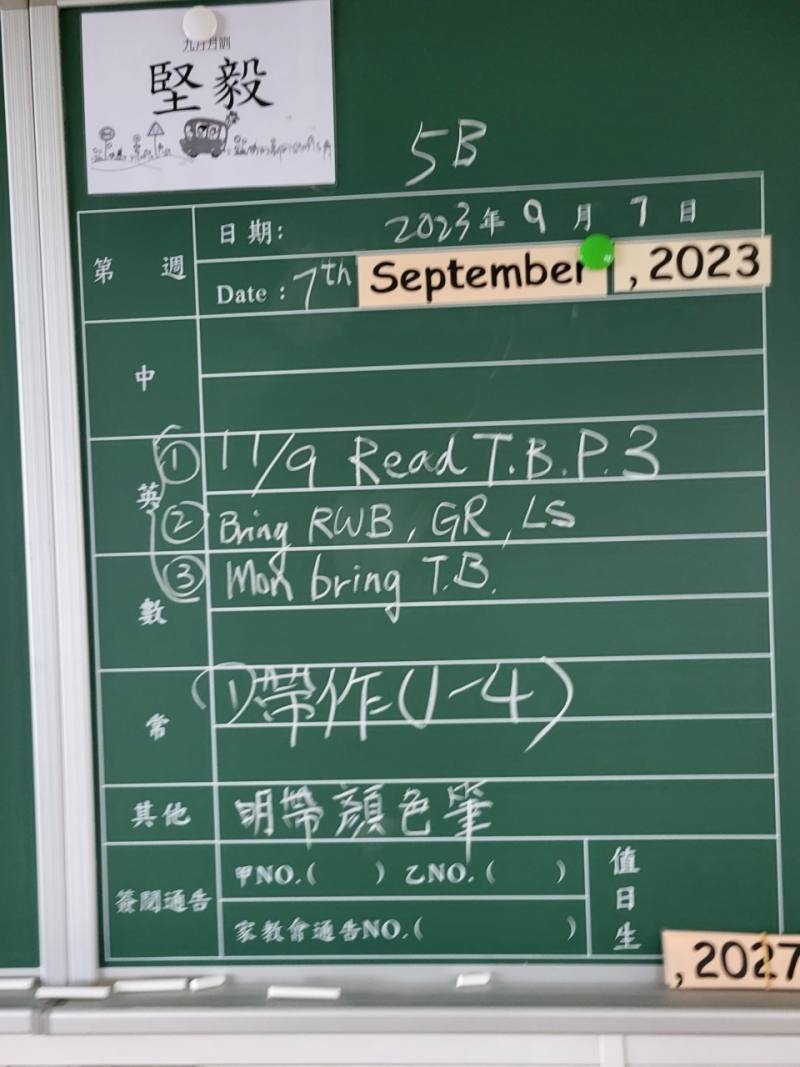 九月月訓
堅毅
5B
第 週
日期: 2023年 9 月 7 日
Date : 7th September , 2023
中
英
① 11/9 Read T.B.P.3
② Bring RWB, GR, LS
③ Mon bring T.B.
數
常
① 帶作(1~4)
其他
明帶顏色筆
簽閱通告
甲NO.( ) 乙NO.( )
家教會通告NO.( )
值日生
, 2027